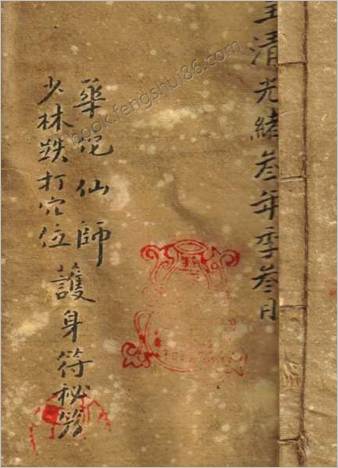 清光緒叁年季叁月
華佗仙師
少林跌打穴位
護身符秘笈
book.fengshui86.com